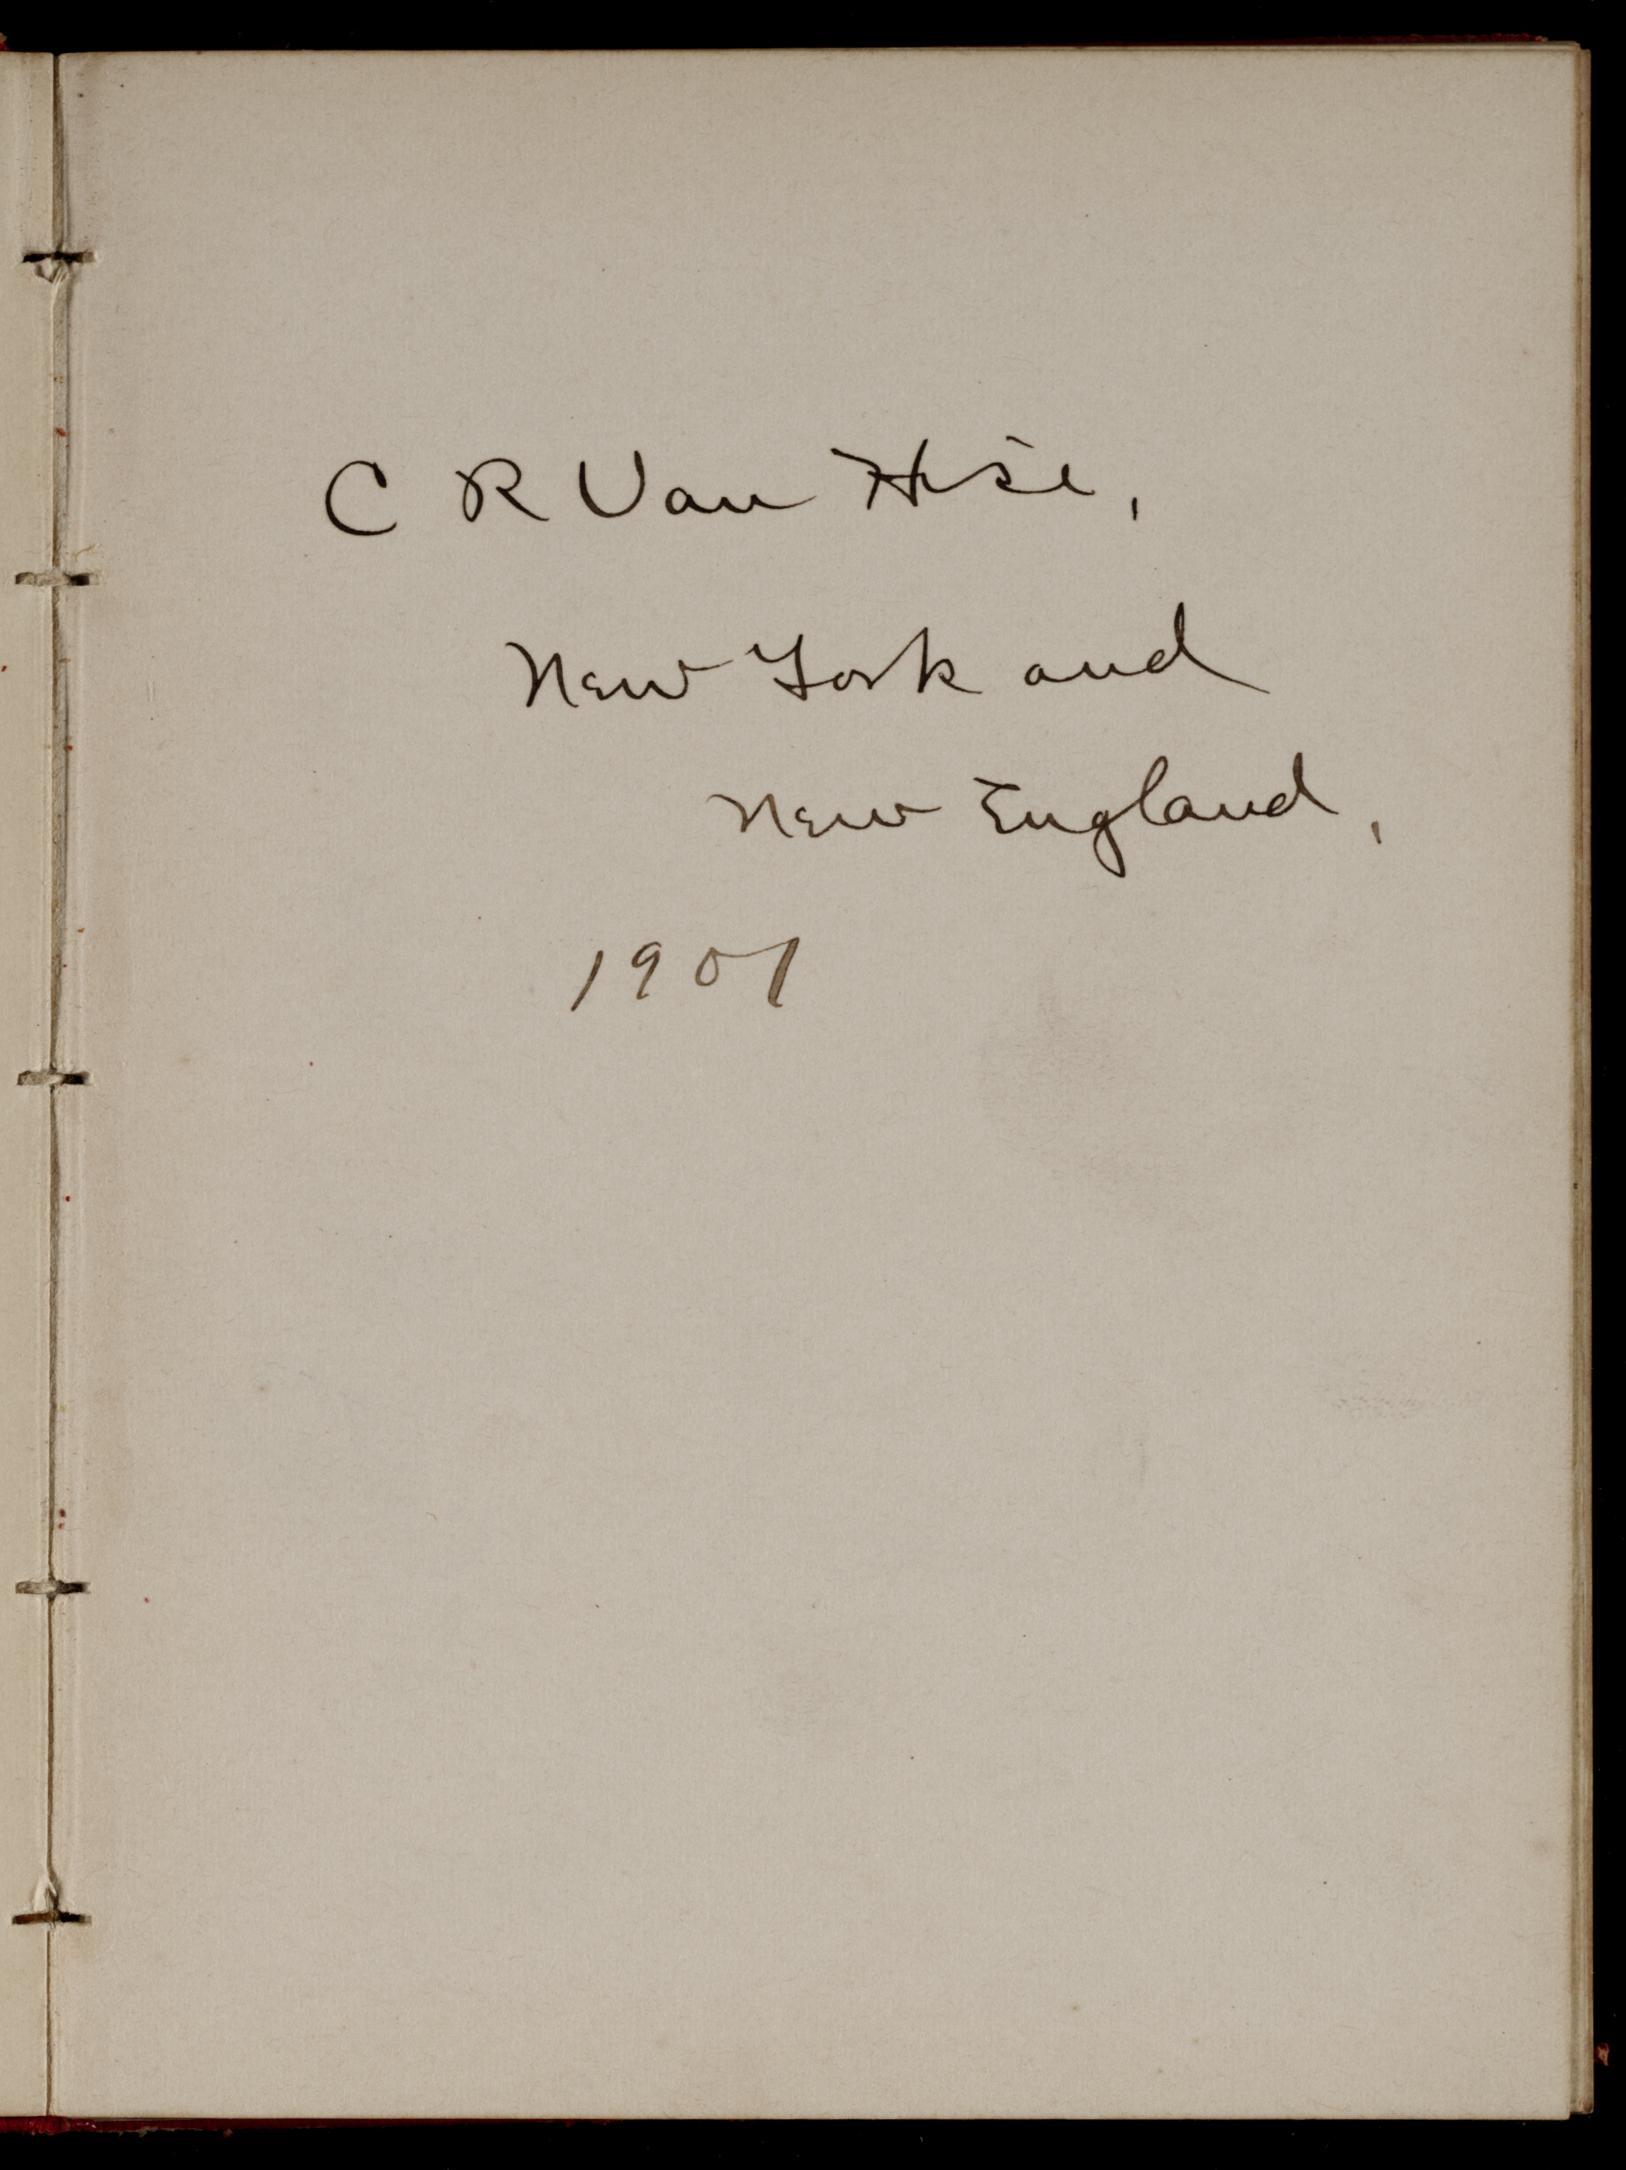 C R Van Hise,
New York and
New England,
1901